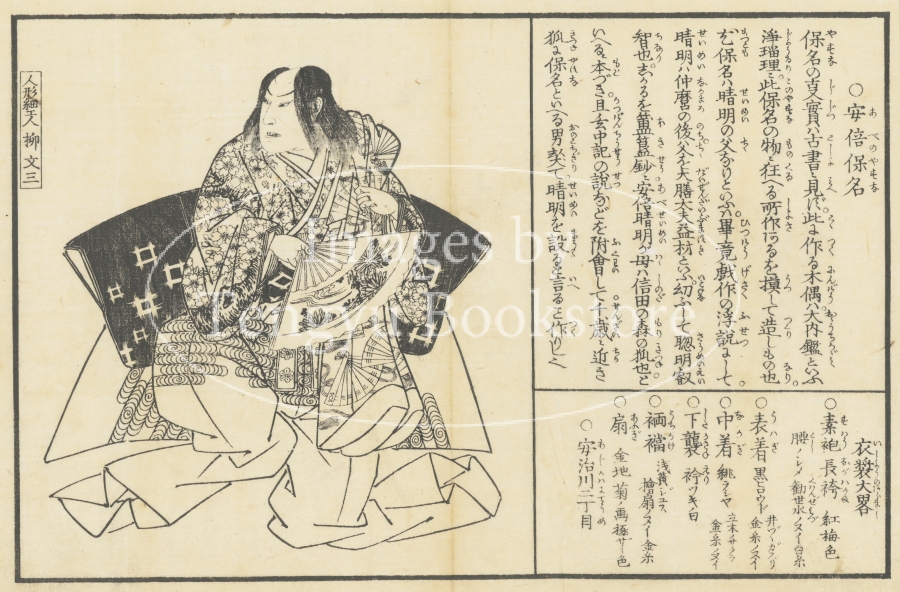 ○安倍保名
保名の事実ハ古書に見えず此に作る木偶ハ大内鑑といふ
浄瑠理に此保名の物に狂へる所作あるを摸して造しもの也
尤保名ハ晴明の父なりといふハ畢竟戯作の浮説にして
晴明ハ仲麿の後父を大膳大夫益材といふ幼ふして聡明叡
智也しかるを簠簋鈔に安倍晴明が母ハ信田の森の狐也と
いへるに本づき且玄中記の説などを附會して千歳に近き
狐に保名といへる男契て晴明を設るを言ると作りしハ
衣装大畧
○素袍長袴 紅梅色
腰ノシメ 勧世水ノヌイ白糸
○表着 黒ビロウド 井づゝカクリ 金糸ノヌイ
○中着 緋ラシヤ 金糸ノヌイ
○下襲 衿ツキ白
○裲襠 浅黄ジユス 檜扇ノヌイ金糸
○扇 金地菊ノ画 極ザイ色
○安治川二丁目
人形細工人 柳文三
Images by
Tengyu Bookstore